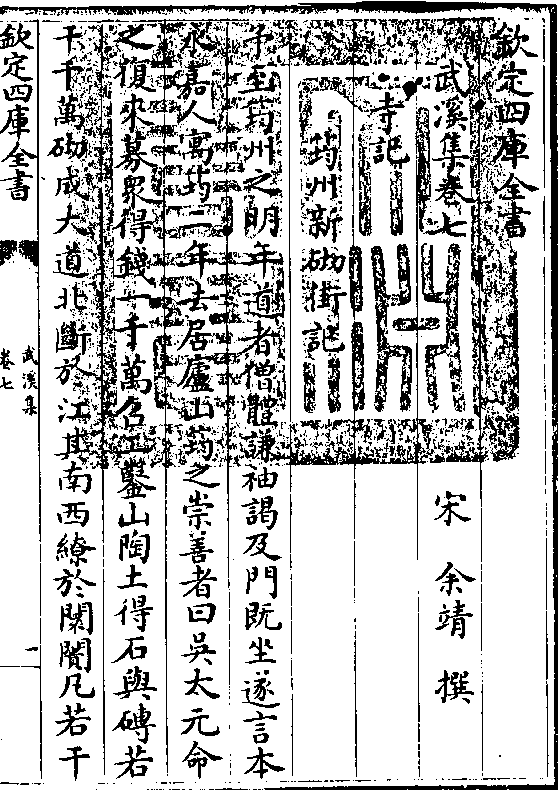 欽定四庫全書
武溪集卷七
宋 余靖 撰
寺記
筠州新砌街記
予至筠州之明年道者僧體謙袖謁及門既坐遂言本
永嘉人寓筠二年去居廬山筠之崇善者曰吳太元命
之復來募眾得錢一千萬召工鑿山陶土得石與磚若
干千萬砌成大道北斷於江其南西繚於闤闠凡若干
欽定四庫全書
武溪集
卷七
一